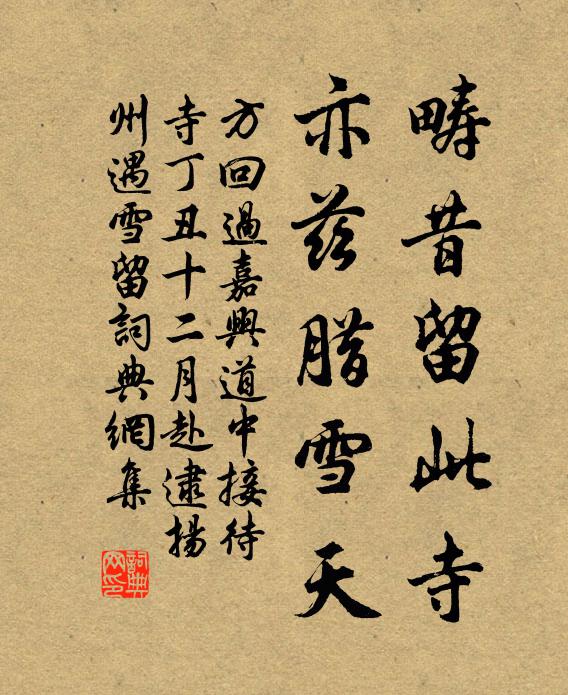 疇昔留此寺
亦茲腊雪天
方回過嘉興道中接待
寺丁丑十二月赴逮揚
州遇雪留詞典網集
詞典網印